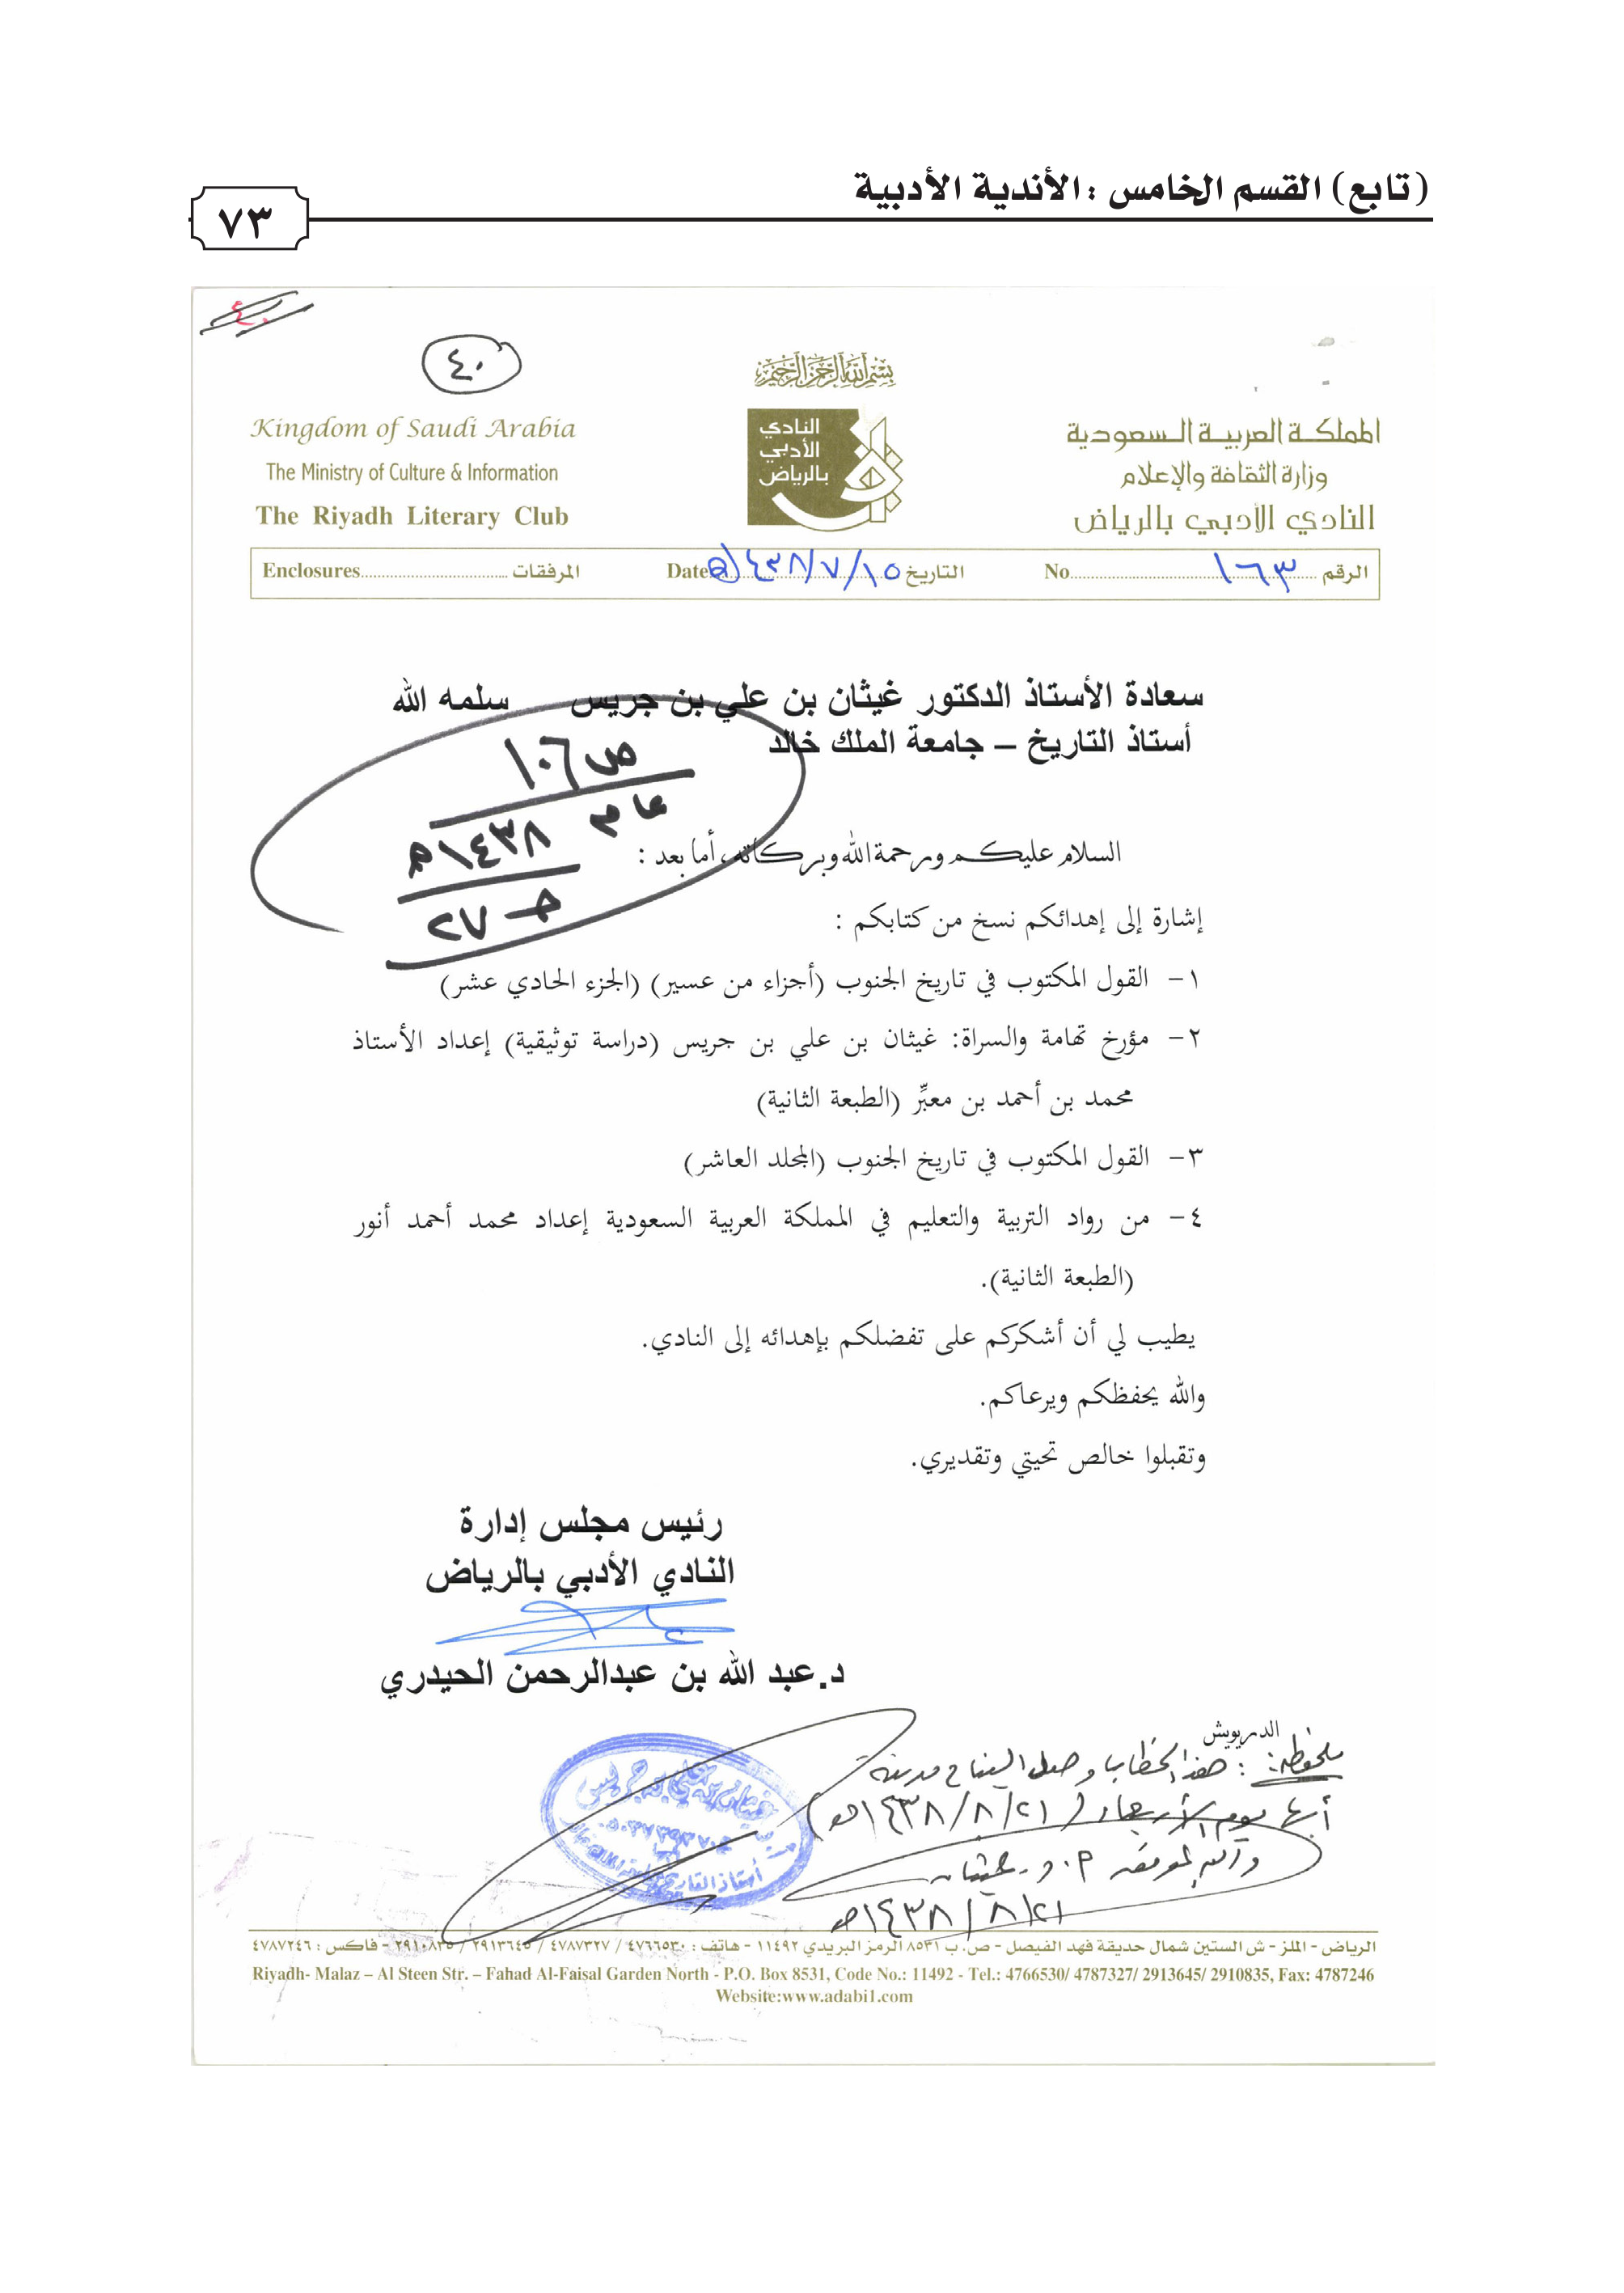 (تابع) القسم الخامس : الأندية الأدبية
٧٣
٤٠
٤٠
بسم الله الرحمن الرحيم
Kingdom of Saudi Arabia
The Ministry of Culture & Information
The Riyadh Literary Club
النادي
الأدبي
بالرياض
المملكة العربية السعودية
وزارة الثقافة والإعلام
النادي الأدبي بالرياض
الرقم ١٦٣ No
التاريخ ١٤٣٨/٧/١٥هـ Date
المرفقات Enclosures
سعادة الأستاذ الدكتور غيثان بن علي بن جريس سلمه الله
أستاذ التاريخ – جامعة الملك خالد
ص ١٠٦
عام ١٤٣٨هـ
حـ ٢٧
السلام عليكم ورحمة الله وبركاته، أما بعد :
إشارة إلى إهدائكم نسخ من كتابكم :
١- القول المكتوب في تاريخ الجنوب (أجزاء من عسير) (الجزء الحادي عشر)
٢- مؤرخ تهامة والسراة: غيثان بن علي بن جريس (دراسة توثيقية) إعداد الأستاذ
محمد بن أحمد بن معبِّر (الطبعة الثانية)
٣- القول المكتوب في تاريخ الجنوب (المجلد العاشر)
٤- من رواد التربية والتعليم في المملكة العربية السعودية إعداد محمد أحمد أنور
(الطبعة الثانية).
يطيب لي أن أشكركم على تفضلكم بإهدائه إلى النادي.
والله يحفظكم ويرعاكم.
وتقبلوا خالص تحيتي وتقديري.
رئيس مجلس إدارة
النادي الأدبي بالرياض
د.عبد الله بن عبدالرحمن الحيدري
الدرويش
ملحوظة : هذا الخطاب وصل إلينا في مدينة
أبها يوم الأربعاء (١٤٣٨/٨/٢١هـ)
والله الموفق أ.د. غيثان
١٤٣٨/٨/٢١هـ
غيثان بن علي بن جريس
أستاذ التاريخ
الرياض - الملز - ش الستين شمال حديقة فهد الفيصل - ص. ب ٨٥٣١ الرمز البريدي ١١٤٩٢ - هاتف : ٤٧٦٦٥٣٠ / ٤٧٨٧٣٢٧ / ٢٩١٣٦٤٥ / ٢٩١٠٨٣٥ - فاكس : ٤٧٨٧٢٤٦
Riyadh- Malaz – Al Steen Str. – Fahad Al-Faisal Garden North - P.O. Box 8531, Code No.: 11492 - Tel.: 4766530/ 4787327/ 2913645/ 2910835, Fax: 4787246
Website:www.adabi1.com